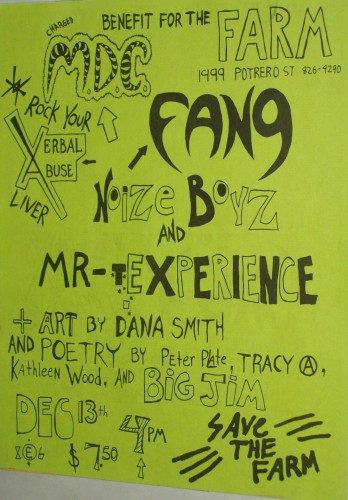 BENEFIT FOR THE FARM
CHARGED
M.D.C.
1999 POTRERO ST 826-4290
ROCK YOUR
VERBAL ABUSE
LIVER
FANG
NOiZE BOYZ
AND
MR-T EXPERIENCE
+ ART BY DANA SMITH
AND POETRY BY Peter Plate, TRACY Ⓐ,
Kathleen Wood, AND BIG JIM
DEC 13th 4 PM
$7.50
SAVE THE FARM